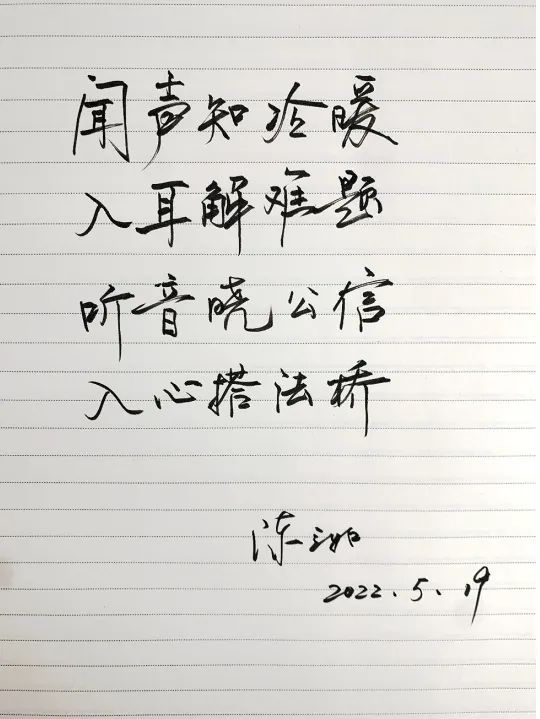 闻声知冷暖
入耳解难题
听音晓公信
入心搭法桥
陈
2022.5.19